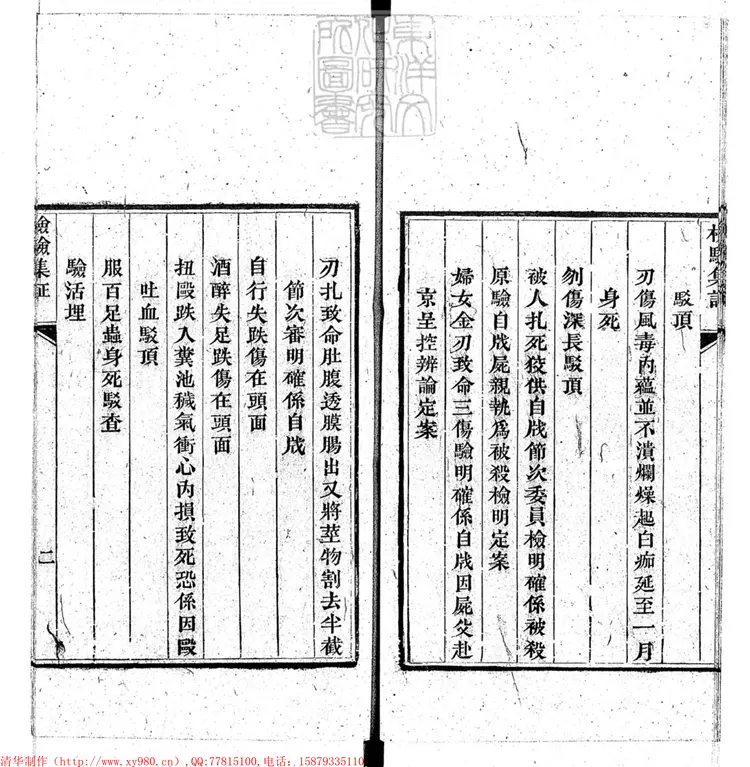 檢驗集証
駁頂
刃傷風毒內蘊並不潰爛燥起白痂延至一月
身死
刎傷深長駁頂
被人扎死狡供自戕節次委員檢明確係被殺
原驗自戕屍親執為被殺檢明定案
婦女金刃致命三傷驗明確係自戕因屍父赴
京呈控辨論定案
刃扎致命肚腹透膜腸出又將莖物割去半截
節次審明確係自戕
自行失跌傷在頭面
酒醉失足跌傷在頭面
扭毆跌入糞池穢氣衝心內損致死恐係因毆
吐血駁頂
服百足蟲身死駁查
驗活埋
檢驗集証
二
東洋文化研究所圖書
清华制作（http://www.xy980.cn）,QQ:77815100,电话：15879335110